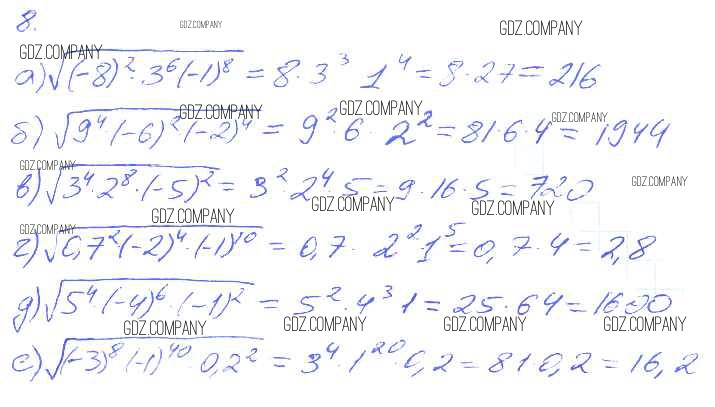 8.
GDZ.COMPANY
GDZ.COMPANY
GDZ.COMPANY
а) √(-8)²·3⁶(-1)⁸ = 8·3³ 1⁴ = 8·27 = 216
GDZ.COMPANY
GDZ.COMPANY
GDZ.COMPANY
б) √9⁴·(-6)²(-2)⁴ = 9²·6·2² = 81·6·4 = 1944
GDZ.COMPANY
GDZ.COMPANY
в) √3⁴·2⁸·(-5)² = 3²·2⁴·5 = 9·16·5 = 720
GDZ.COMPANY
GDZ.COMPANY
GDZ.COMPANY
GDZ.COMPANY
г) √0,7²(-2)⁴·(-1)¹⁰ = 0,7·2²·1⁵ = 0,7·4 = 2,8
д) √5⁴·(-4)⁶·(-1)² = 5²·4³·1 = 25·64 = 1600
GDZ.COMPANY
GDZ.COMPANY
GDZ.COMPANY
GDZ.COMPANY
е) √(-3)⁸·(-1)⁴⁰·0,2² = 3⁴·1²⁰·0,2 = 81·0,2 = 16,2